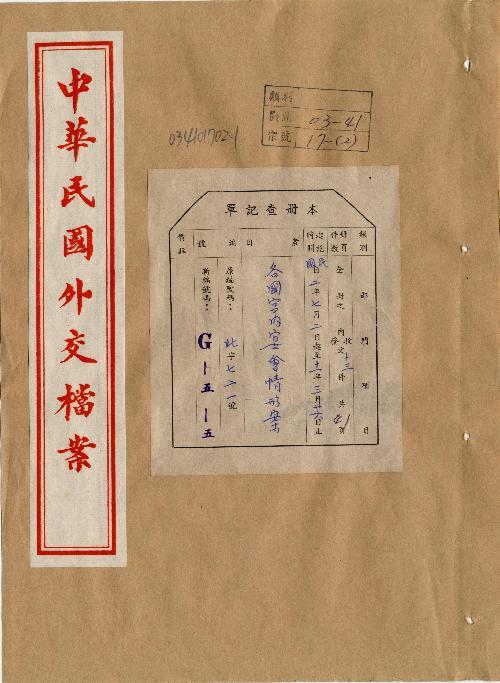 中華民國外交檔案
034101702-1
類別
03-41
宗號 17-(2)
本冊查記單
類別 部門項目
冊頁件數 全冊之內 收發文十三件 共41頁
起記時間 民國二年七月二日起至十一年三月廿六日止
案目 各國宮內宴會情形案
編號 原編號碼：北字七二一號
新編號碼：G—五—五
備註